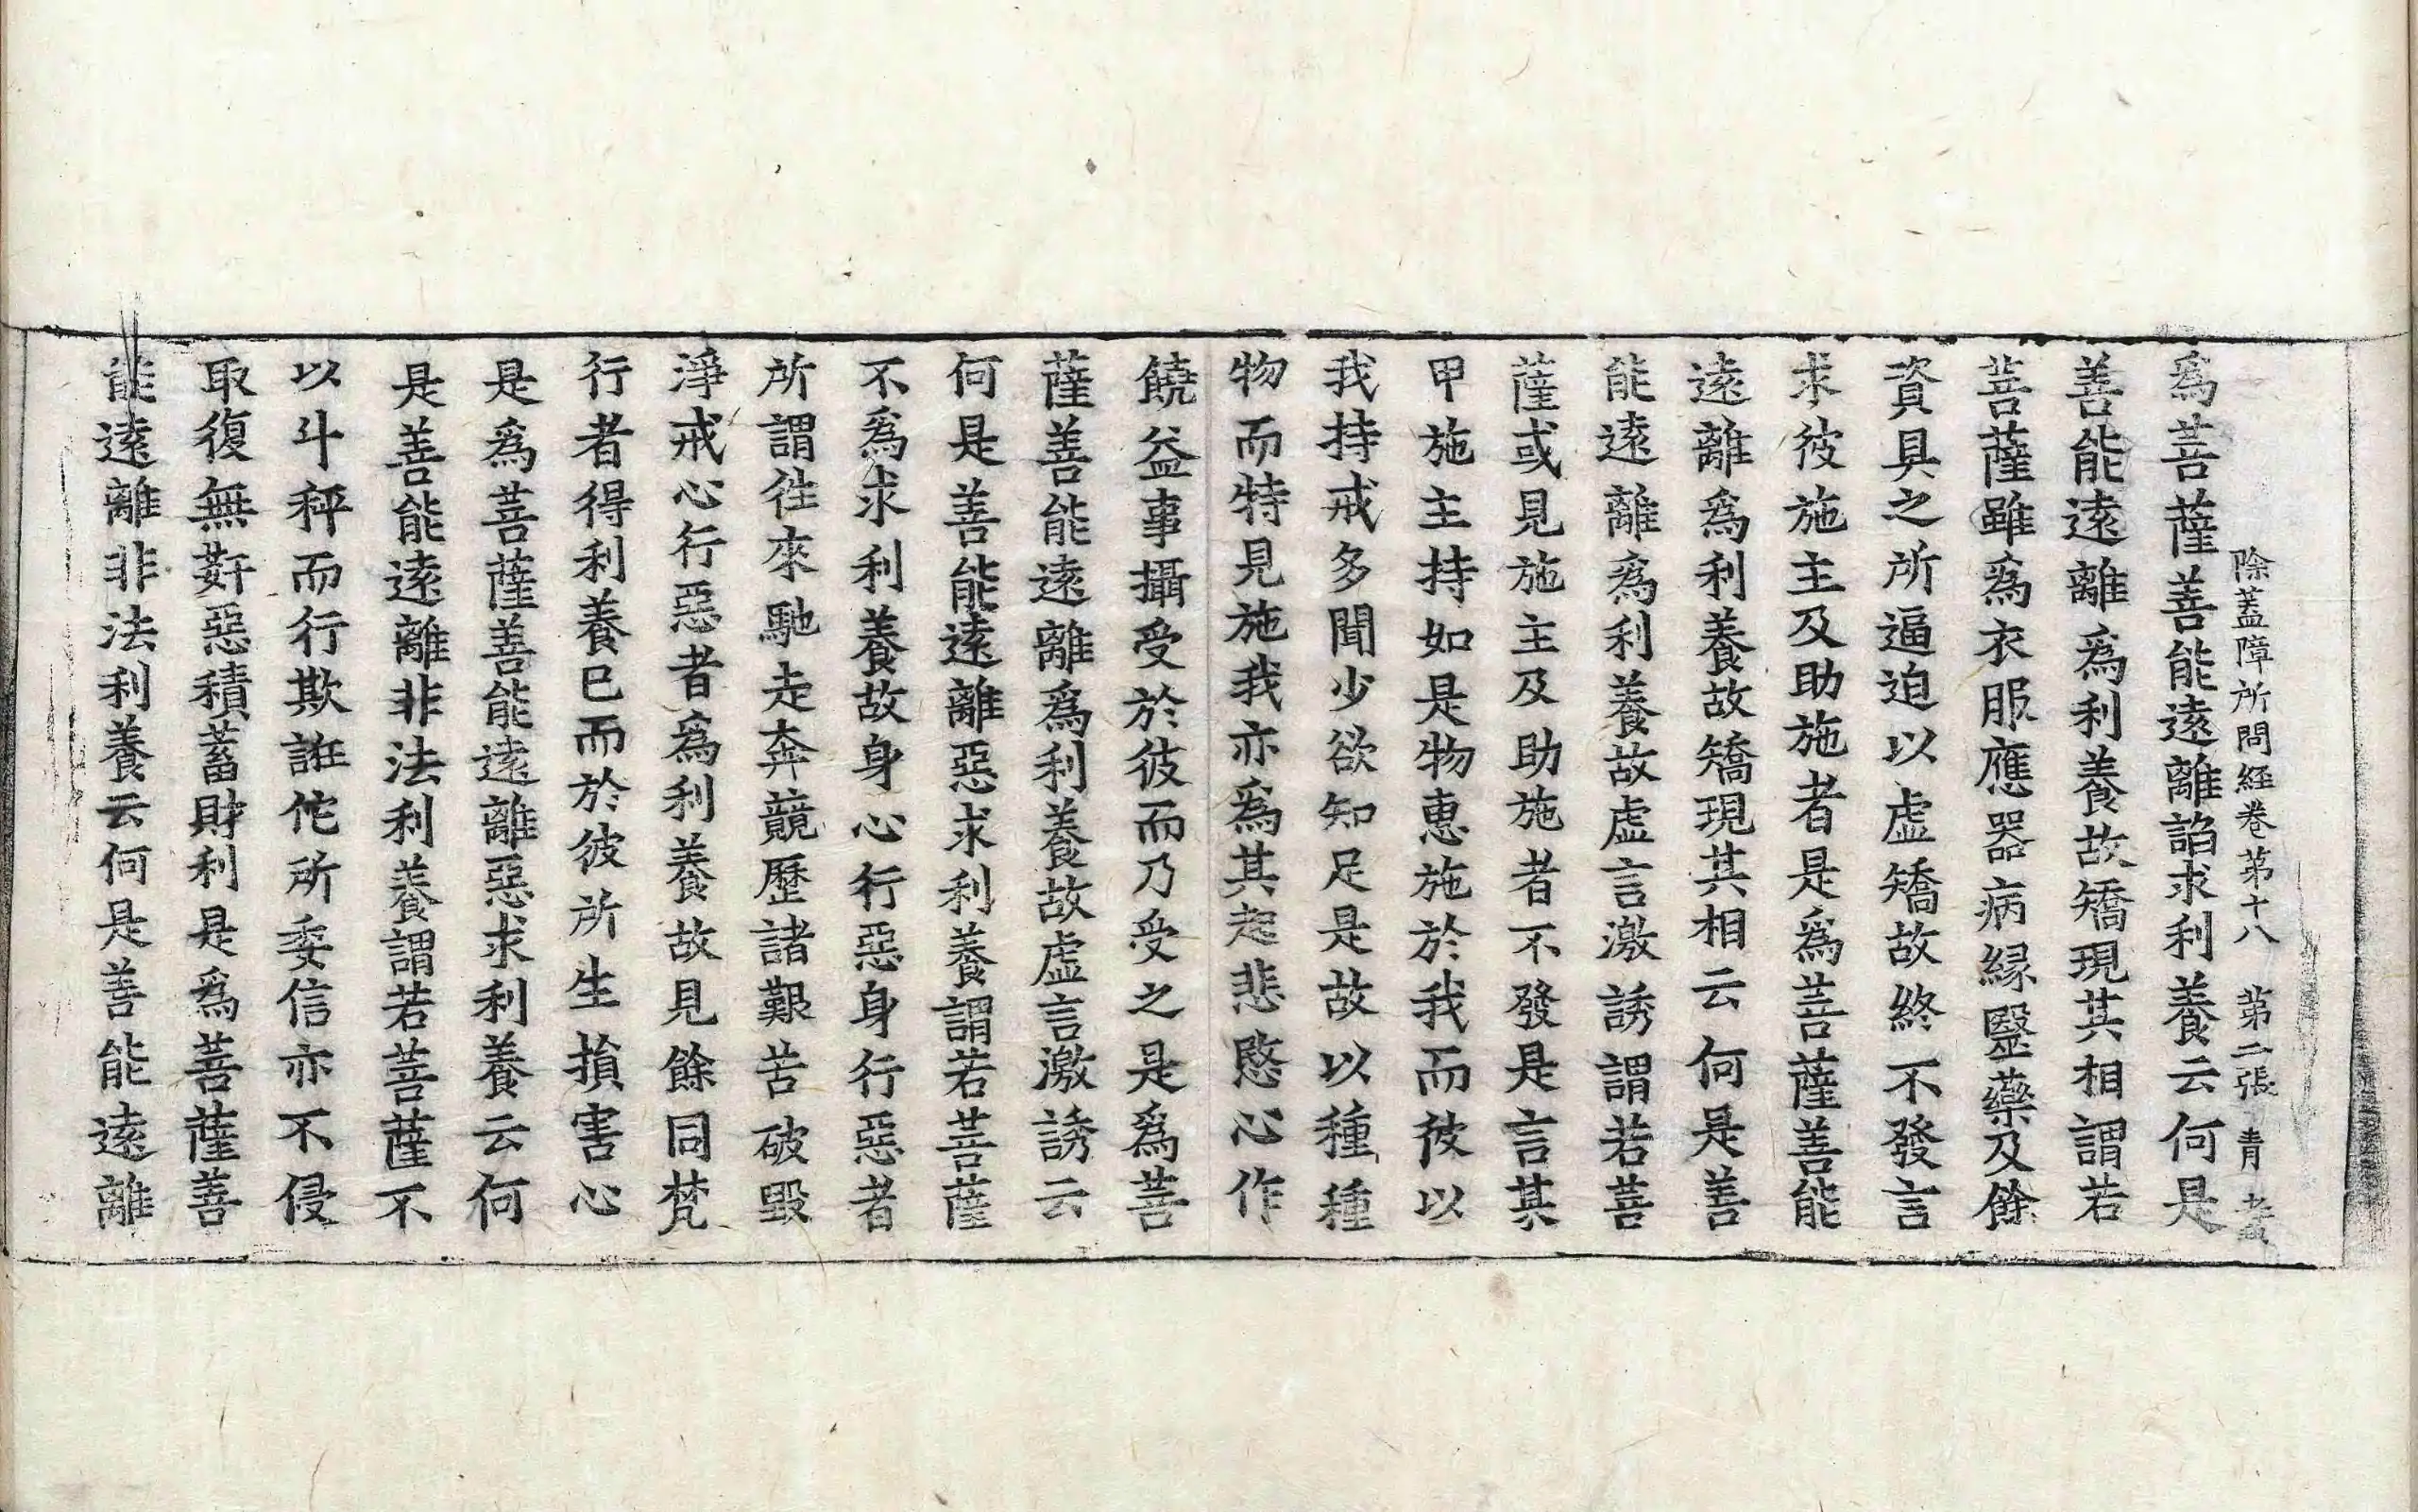 除蓋障所問経卷第十八　第二張　青
爲菩薩善能遠離諂求利養云何是
善能遠離爲利養故矯現其相謂若
菩薩雖爲衣服應器病縁毉藥及餘
資具之所逼迫以虛矯故終不發言
求彼施主及助施者是爲菩薩善能
遠離爲利養故矯現其相云何是善
能遠離爲利養故虛言激誘謂若菩
薩或見施主及助施者不發是言某
甲施主持如是物惠施於我而彼以
我持戒多聞少欲知足是故以種種
物而特見施我亦爲其起悲愍心作
饒益事攝受於彼而乃受之是爲菩
薩善能遠離爲利養故虛言激誘云
何是善能遠離惡求利養謂若菩薩
不爲求利養故身心行惡身行惡者
所謂徃來馳走奔競歷諸艱苦破毀
淨戒心行惡者爲利養故見餘同梵
行者得利養已而於彼所生損害心
是爲菩薩善能遠離惡求利養云何
是善能遠離非法利養謂若菩薩不
以斗秤而行欺誑佗所委信亦不侵
取復無姧惡積蓄財利是爲菩薩善
能遠離非法利養云何是善能遠離